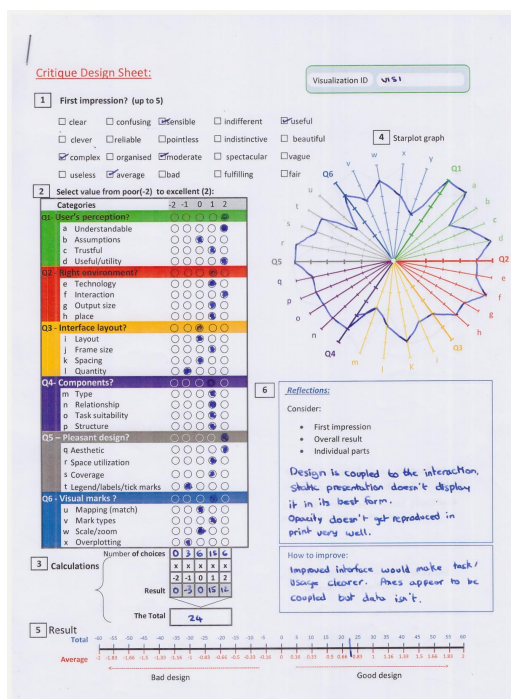 Critique Design Sheet:
Visualization ID VIS1
1 First impression? (up to 5)
clear confusing sensible indifferent useful
clever reliable pointless indistinctive beautiful
complex organised moderate spectacular vague
useless average bad fulfilling fair
2 Select value from poor(-2) to excellent (2):
Categories -2 -1 0 1 2
Q1- User's perception?
a Understandable
b Assumptions
c Trustful
d Useful/utility
Q2 - Right environment?
e Technology
f Interaction
g Output size
h place
Q3 - Interface layout?
i Layout
j Frame size
k Spacing
l Quantity
Q4- Components?
m Type
n Relationship
o Task suitability
p Structure
Q5 – Pleasant design?
q Aesthetic
r Space utilization
s Coverage
t Legend/labels/tick marks
Q6 - Visual marks ?
u Mapping (match)
v Mark types
w Scale/zoom
x Overplotting
Number of choices 0 3 6 15 6
x x x x x
-2 -1 0 1 2
3 Calculations
Result 0 -3 0 15 12
The Total 24
4 Starplot graph
Q1
a
b
c
d
Q2
e
f
g
h
Q3
i
k
l
m
Q4
n
o
p
q
Q5
r
s
t
u
Q6
v
w
x
y
6 Reflections:
Consider:
• First impression
• Overall result
• Individual parts
Design is coupled to the interaction,
static presentation doesn't display
it in its best form.
Opacity doesn't get reproduced in
print very well.
How to improve:
Improved interface would make task/
usage clearer. Axes appear to be
coupled but data isn't.
5 Result
Total -60 -55 -50 -45 -40 -35 -30 -25 -20 -15 -10 -5 0 5 10 15 20 25 30 35 40 45 50 55 60
Average -2 -1.83 -1.66 -1.5 -1.16 -1 -0.83 -0.66 -0.5 -0.16 0 0.16 0.5 0.66 0.83 1 1.16 1.5 1.66 1.83 2
Bad design Good design